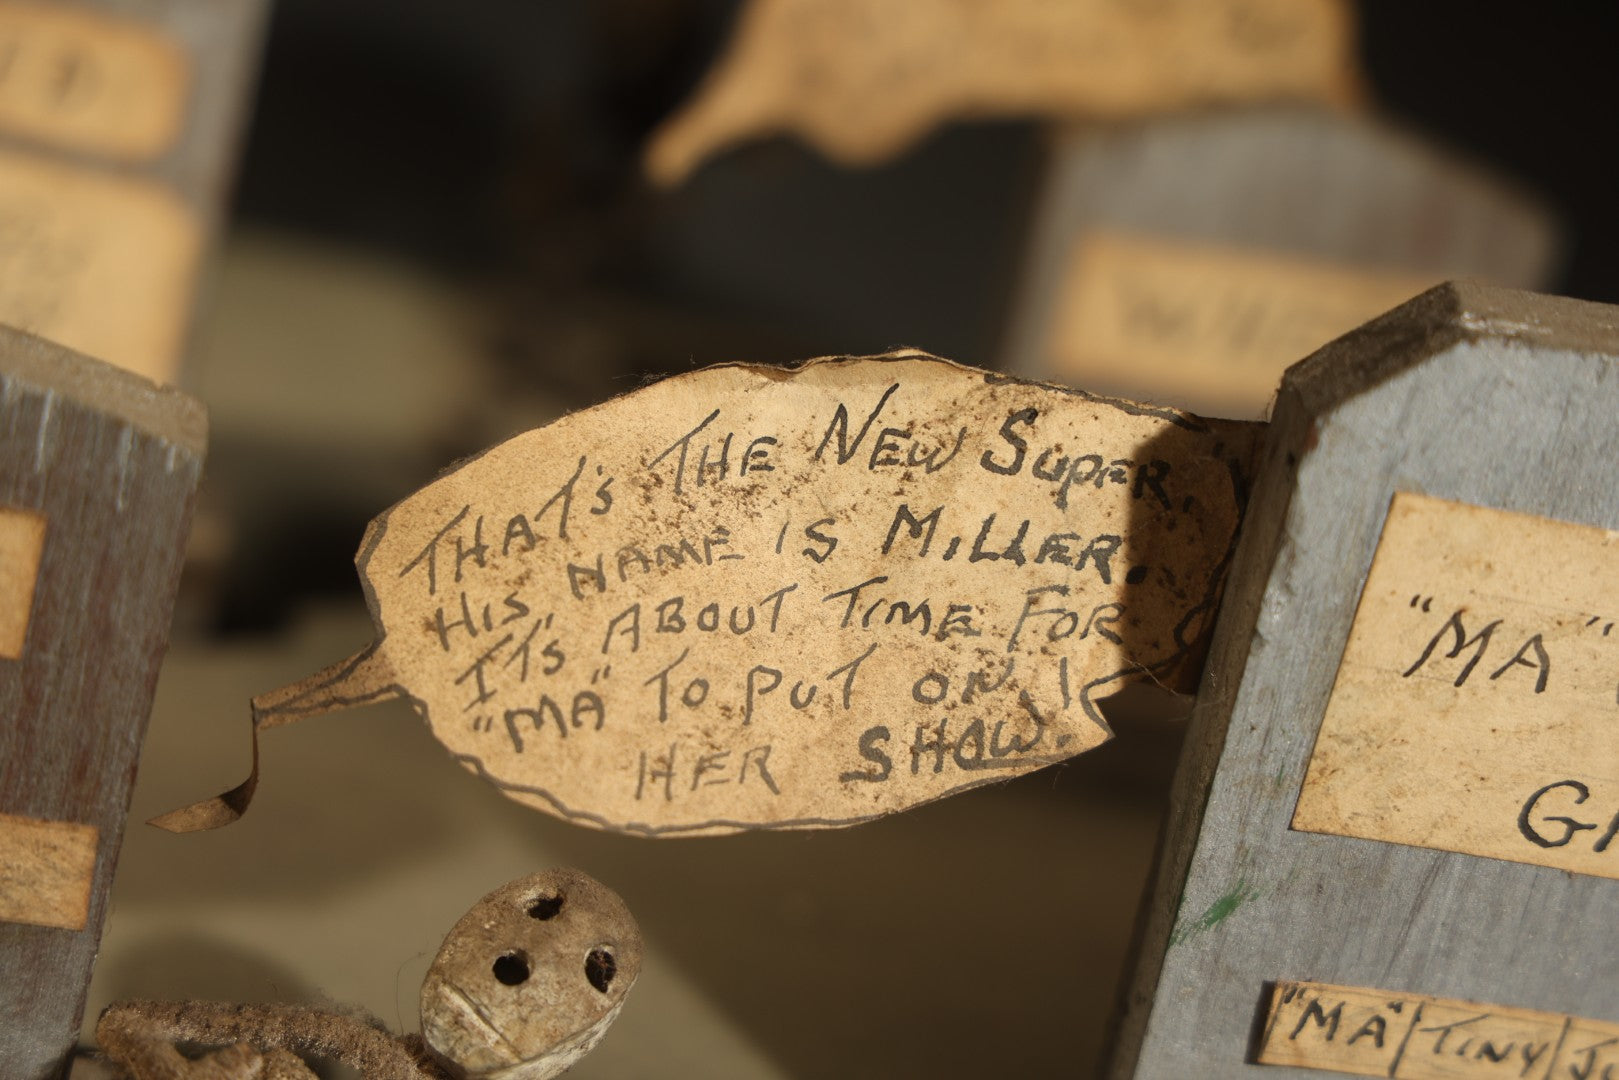 THAT'S THE NEW SUPER,
HIS NAME IS MILLER.
IT'S ABOUT TIME FOR
"MA" TO PUT ON
HER SHOW!
"MA"
"MA" TINY